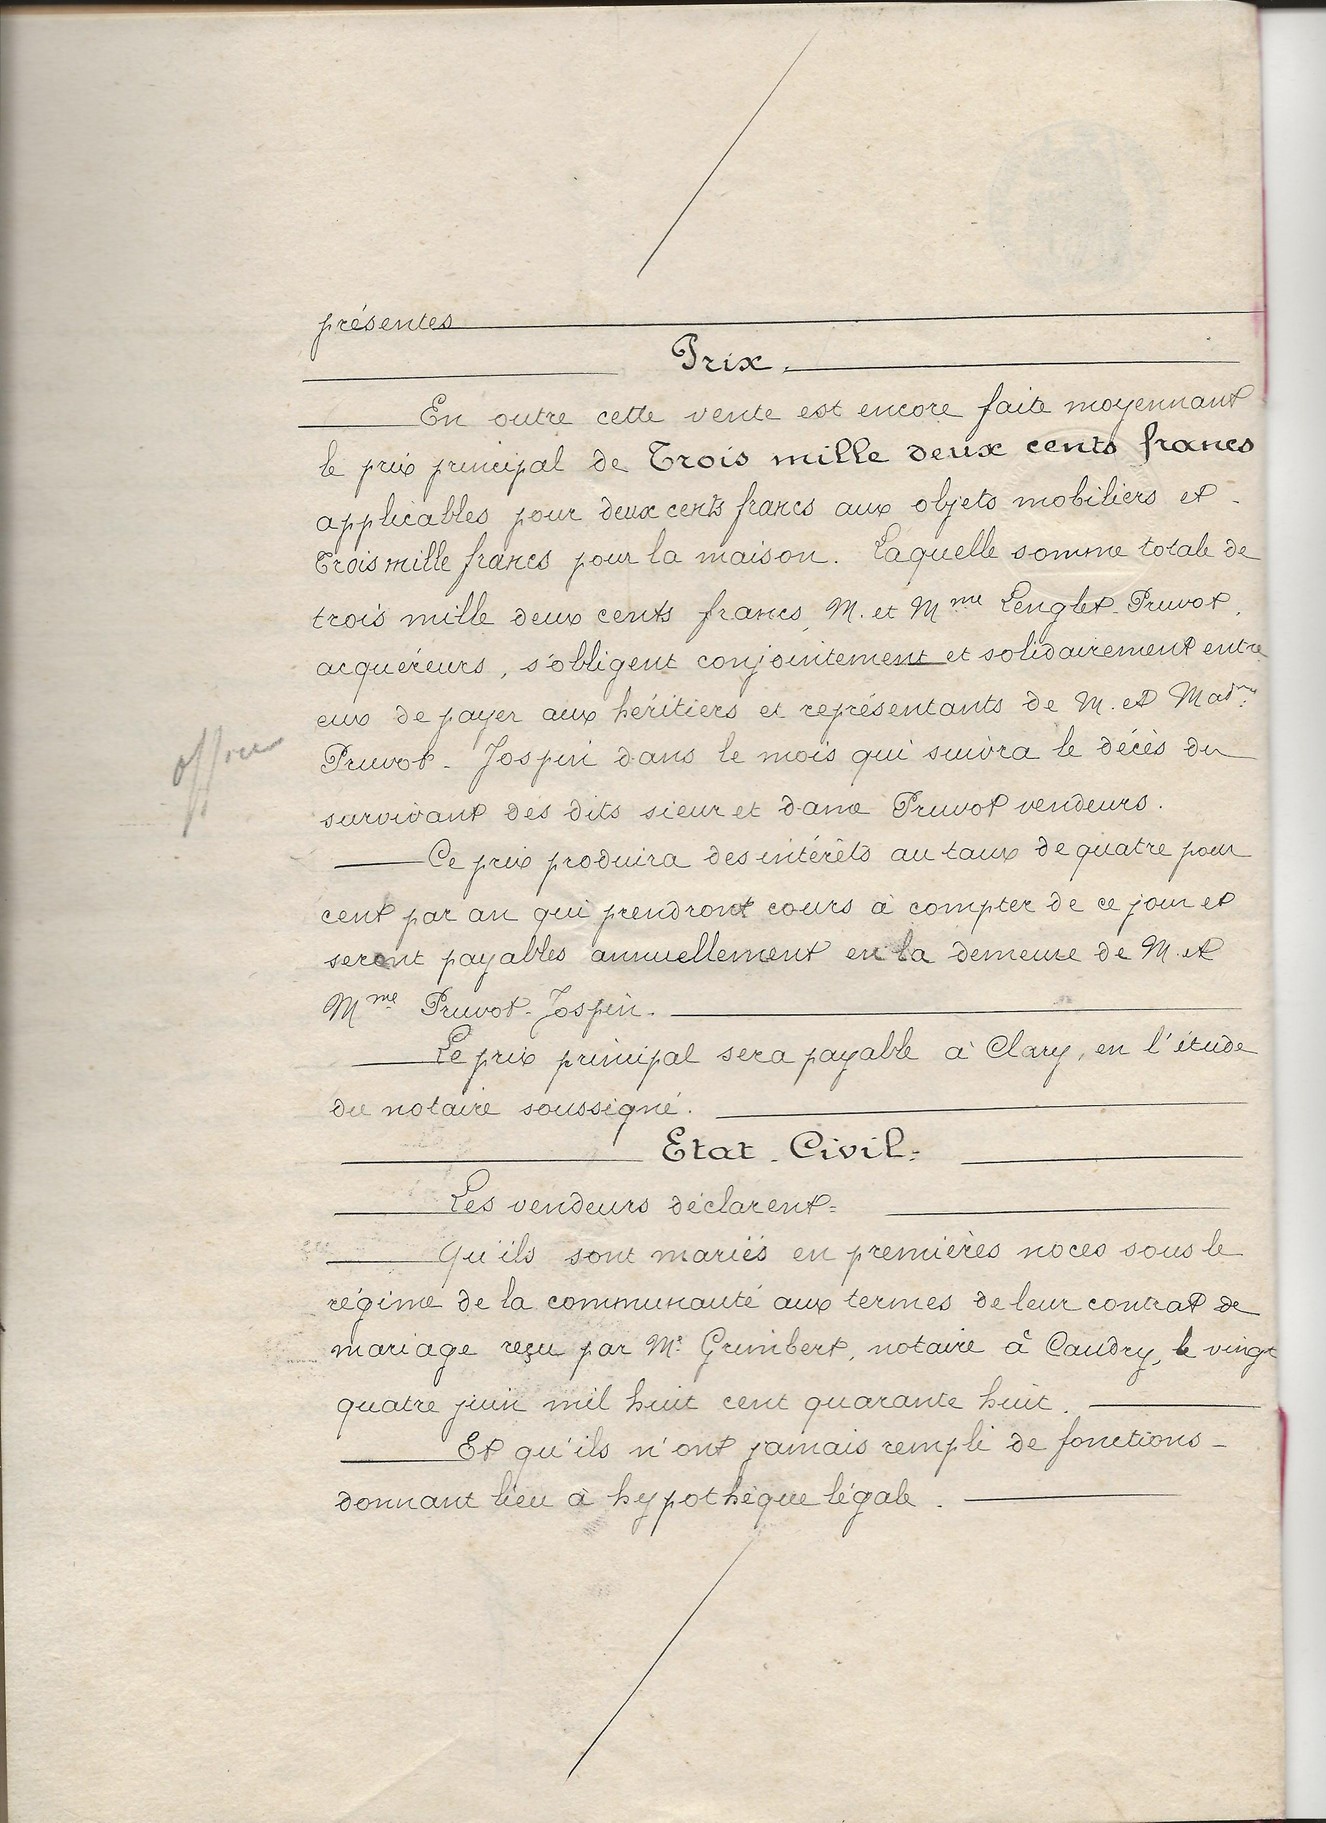 présentes
Prix.
En outre cette vente est encore faite moyennant
le prix principal de Trois mille deux cents francs
applicables pour deux cents francs aux objets mobiliers et
Trois mille francs pour la maison. Laquelle somme totale de
trois mille deux cents francs, M. et Mme Lenglet-Pruvot,
acquéreurs, s'obligent conjointement et solidairement entre
eux de payer aux héritiers et représentants de M. et Madme
Pruvot-Jospin dans le mois qui suivra le décès du
survivant des dits sieur et dame Pruvot vendeurs.
Ce prix produira des intérêts au taux de quatre pour
cent par an qui prendront cours à compter de ce jour et
seront payables annuellement en la demeure de M. et
Mme Pruvot-Jospin.
Le prix principal sera payable à Clary, en l'étude
du notaire soussigné.
Etat-Civil=
Les vendeurs déclarent=
Qu'ils sont mariés en premières noces sous le
régime de la communauté aux termes de leur contrat de
mariage reçu par Me Grimbert, notaire à Caudry, le vingt
quatre juin mil huit cent quarante huit.
Et qu'ils n'ont jamais rempli de fonctions-
donnant lieu à hypothèque légale.